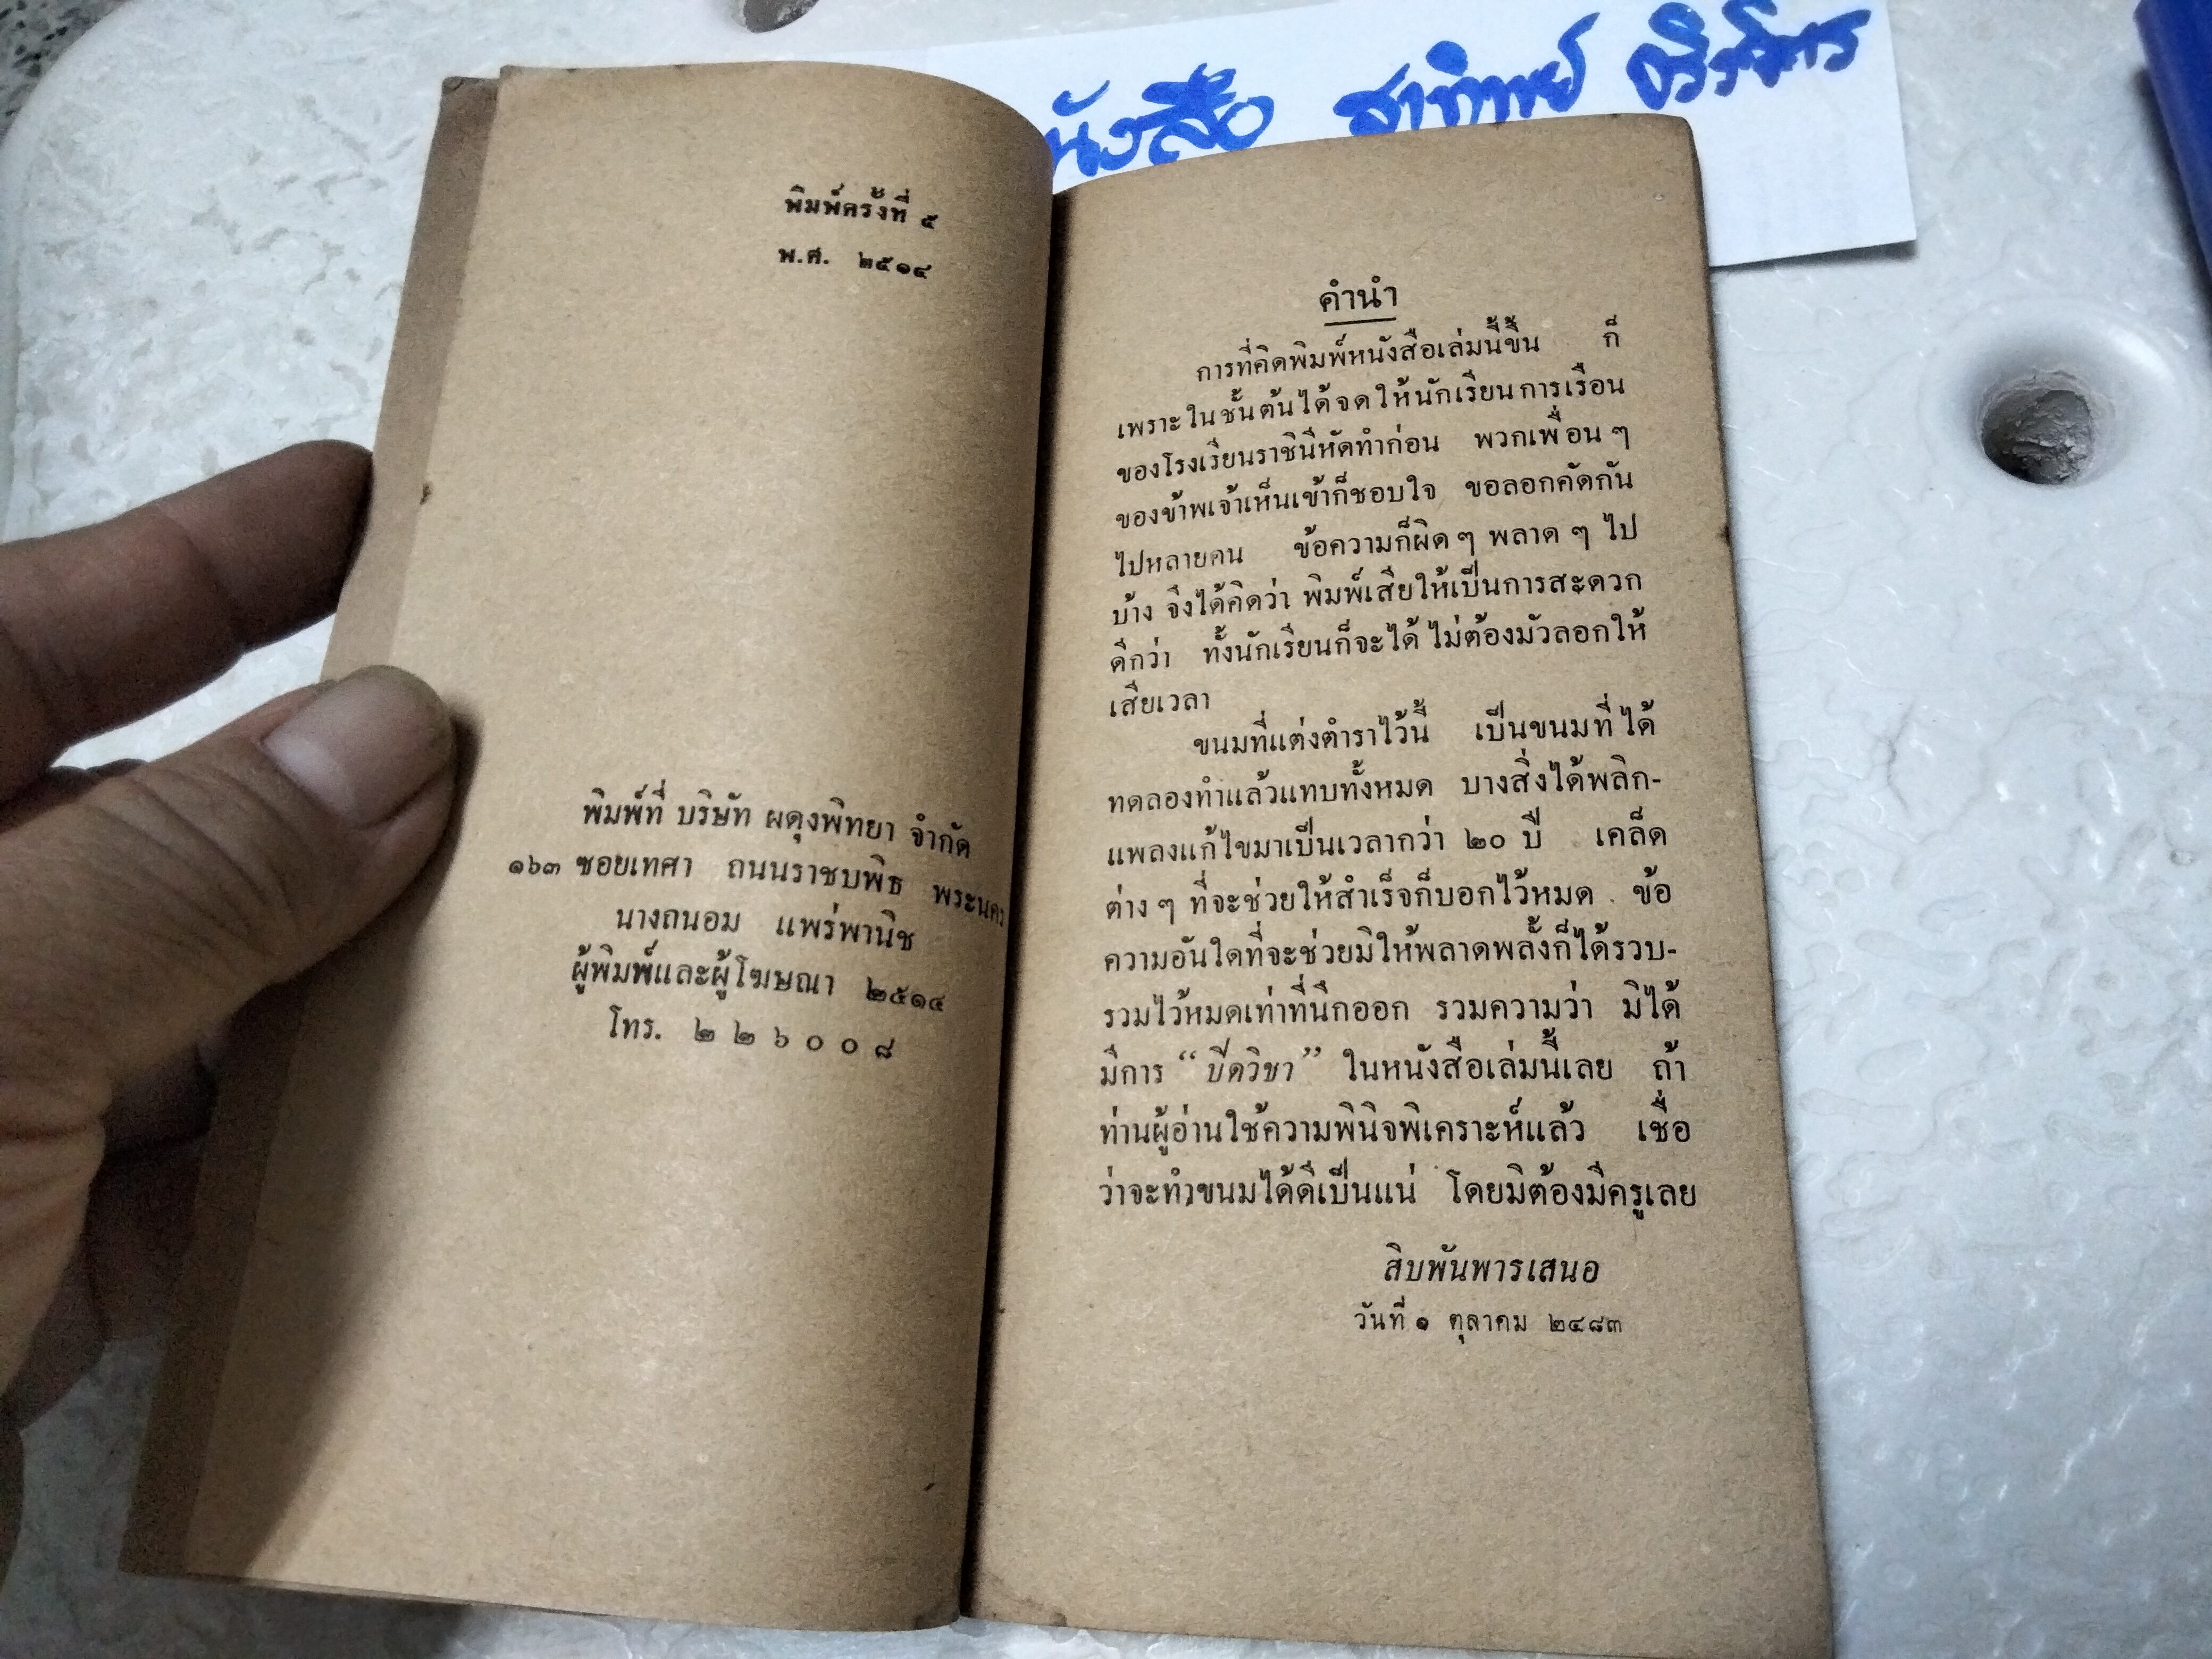 หนังสือ สาทิพย์
พิมพ์ครั้งที่ ๕
พ.ศ. ๒๕๑๔
พิมพ์ที่ บริษัท ผดุงพิทยา จำกัด
๑๖๓ ซอยเทศา ถนนราชบพิธ พระนคร
นางถนอม แพร่พานิช
ผู้พิมพ์และผู้โฆษณา ๒๕๑๔
โทร. ๒ ๒ ๖ ๐ ๐ ๘
คำนำ
การที่คิดพิมพ์หนังสือเล่มนี้ขึ้น ก็
เพราะในชั้นต้นได้จดให้นักเรียนการเรือน
ของโรงเรียนราชินีหัดทำก่อน พวกเพื่อน ๆ
ของข้าพเจ้าเห็นเข้าก็ชอบใจ ขอลอกคัดกัน
ไปหลายคน ข้อความก็ผิด ๆ พลาด ๆ ไป
บ้าง จึงได้คิดว่า พิมพ์เสียให้เป็นการสะดวก
ดีกว่า ทั้งนักเรียนก็จะได้ ไม่ต้องมัวลอกให้
เสียเวลา
ขนมที่แต่งตำราไว้นี้ เป็นขนมที่ได้
ทดลองทำแล้วแทบทั้งหมด บางสิ่งได้พลิก-
แพลงแก้ไขมาเป็นเวลากว่า ๒๐ ปี เคล็ด
ต่าง ๆ ที่จะช่วยให้สำเร็จก็บอกไว้หมด ข้อ
ความอันใดที่จะช่วยมิให้พลาดพลั้งก็ได้รวบ-
รวมไว้หมดเท่าที่นึกออก รวมความว่า มิได้
มีการ “ปีดวิชา” ในหนังสือเล่มนี้เลย ถ้า
ท่านผู้อ่านใช้ความพินิจพิเคราะห์แล้ว เชื่อ
ว่าจะทำขนมได้ดีเป็นแน่ โดยมิต้องมีครูเลย
สิบพันพารเสนอ
วันที่ ๑ ตุลาคม ๒๔๘๓